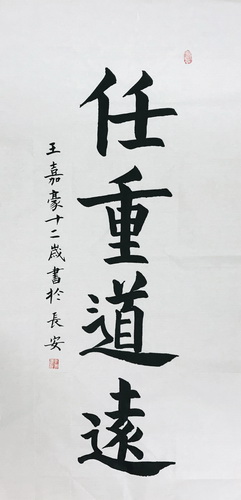 任重道遠
王嘉豪十二歲書於長安